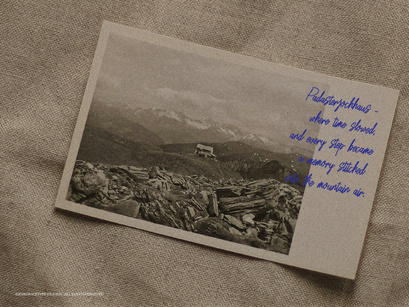 Padasterjochhaus –
where time slowed,
and every step became
a memory stitched
into the mountain air.